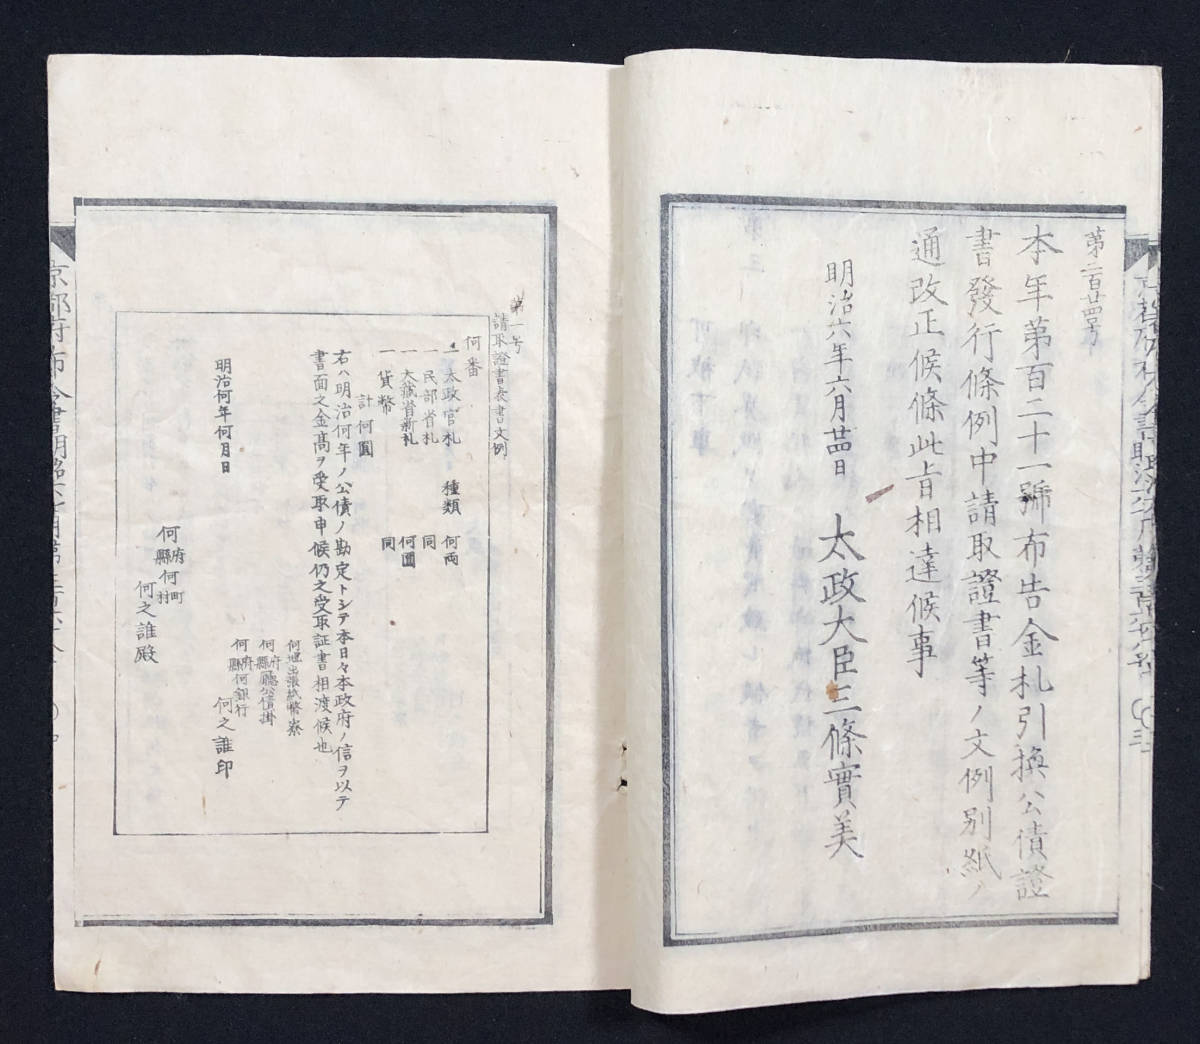 第二百廿四号
本年第百二十一號布告金札引換公債證
書發行條例中請取證書等ノ文例別紙ノ
通改正候條此旨相達候事
明治六年六月廿四日
太政大臣三條實美
第一号
請取證書表書文例
何番
一太政官札 種類 何両
一民部省札 同
一大藏省新札 何圓
一貨幣 同
計何圓
右ハ明治何年ノ公債ノ勘定トシテ本日々本政府ノ信ヲ以テ
書面之金髙ヲ受取申候仍之受取証書相渡候也
明治何年何月日
何地出張紙幣寮
何府縣廳公債掛
何府縣何銀行
何之誰印
何府縣何町村
何之誰殿
京都府布令書明治六年